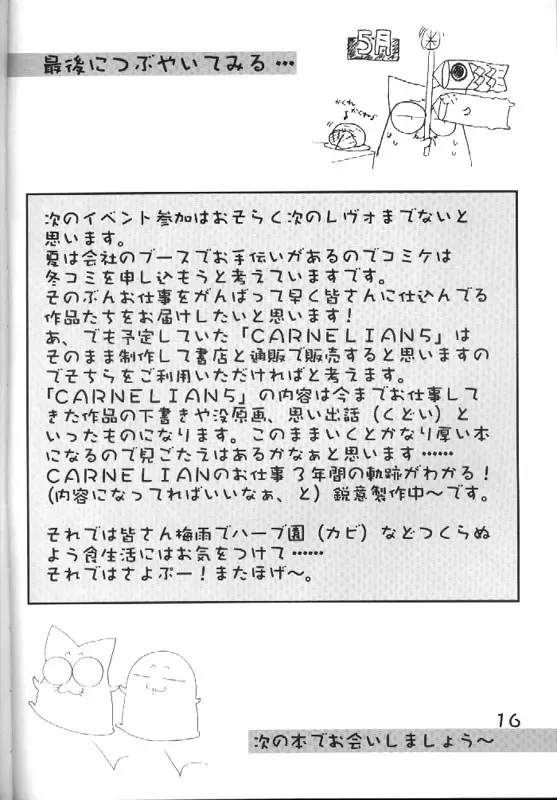 最後につぶやいてみる…
5月
かくれ♪
かくれ♪
次のイベント参加はおそらく次のレヴォまでないと
思います。
夏は会社のブースでお手伝いがあるのでコミケは
冬コミを申し込もうと考えていますです。
そのぶんお仕事をがんばって早く皆さんに仕込んでる
作品たちをお届けしたいと思います！
あ、でも予定していた「CARNELIAN5」は
そのまま制作して書店と通販で販売すると思いますの
でそちらをご利用いただければと考えます。
「CARNELIAN5」の内容は今までお仕事して
きた作品の下書きや没原画、思い出話（くどい）と
いったものになります。このままいくとかなり厚い本
になるので見ごたえはあるかなぁと思います……
CARNELIANのお仕事３年間の軌跡がわかる！
(内容になってればいいなぁ、と) 鋭意製作中～です。
それでは皆さん梅雨でハーブ園（カビ）などつくらぬ
よう食生活にはお気をつけて……
それではさよぷー！またほげ～。
16
次の本でお会いしましょう～